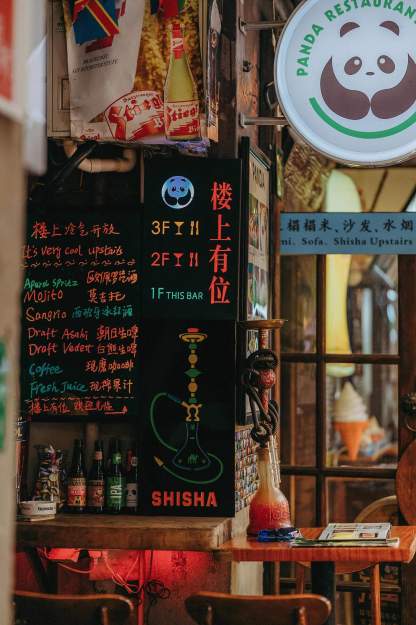 PANDA RESTAURANT
Stiegl
Stiegl
楼上冷气开放
It's very cool upstairs
Aparol Spritz 欧别罗鸡尾酒
Mojito 莫吉托
Sangria 西班牙冰红酒
Draft Asahi 朝日生啤
Draft Vedett 白熊生啤
Coffee 现磨咖啡
Fresh Juice 现榨果汁
楼上有位
楼上有位
3F
2F
1F THIS BAR
SHISHA
PANDA
榻榻米、沙发、水烟
mi, Sofa, Shisha Upstairs
IPA